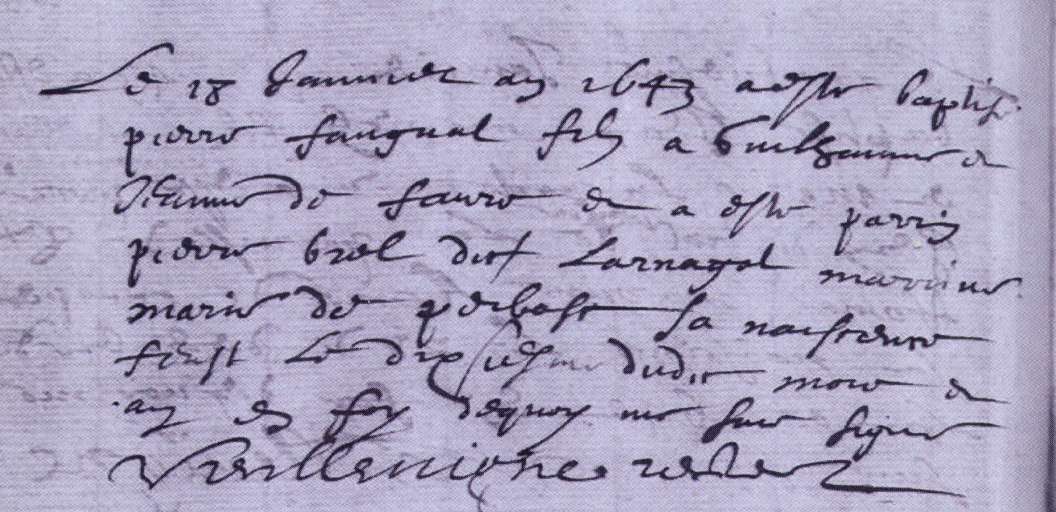 Le 18 Januier an 1643 a este baptise
pierre faugual filz a Guilhaumes et
Jeanne de faure et a este parrin
pierre brel dict Larnagol marrine
marie de perbost sa naissence
feust le dixsiesme dudit mois et
an en foy dequoy me suis signe